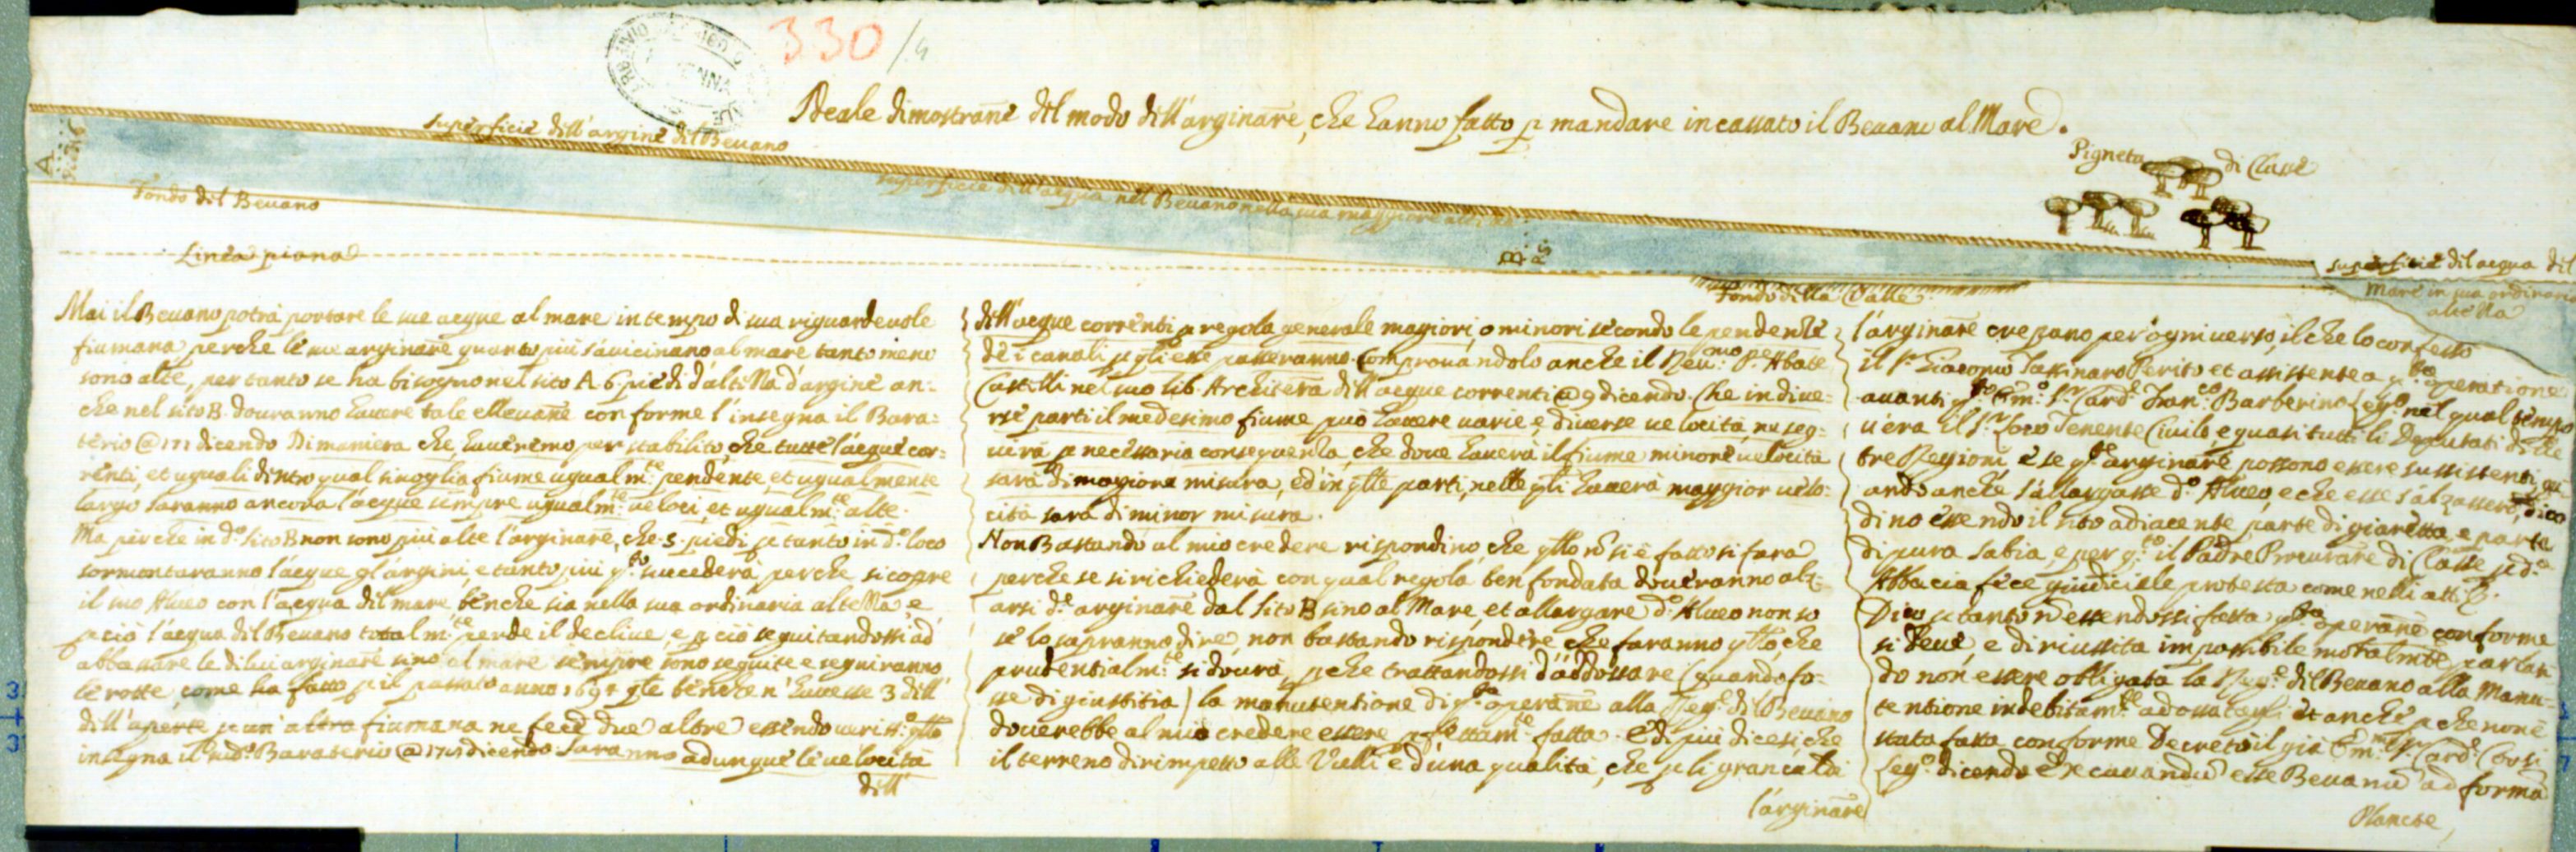 330/4
Reale dimostrane del modo dell'arginare, che hanno fatto p mandare incassato il Bevano al Mare.
superficie dell'argine del Bevano
Pigneta di Classe
A
Fondo del Bevano
superficie dell'acqua nel Bevano nella sua maggiore
Linea piana
B
superficie del acqua del
Mare in sua ordinaria
altezza
Fondo della Valle
Mai il Bevano potrà portare le sue acque al mare in tempo di sua riguardevole
fiumana perche le sue arginare quanto più s'avicinano al mare tanto meno
sono alte, per tanto se ha bisogno nel sito A 6 piedi d'altezza d'argine an-
che nel sito B. dovranno havere tale ellevane conforme l'insegna il Bara-
terio @ 171 dicendo Di maniera che, haveremo per stabilito, che tutte l'acque cor-
renti, et uguali dento qual sivoglia fiume ugualm.te pendente, et ugualmente
largo saranno ancora l'acque sempre ugualm.te veloci, et ugualm.te alte.
Ma perche in d.o sito B non sono più alte l'arginare, che 5. piedi p tanto in d.o loco
sormontaranno l'acque gl'argini, e tanto più q.to succederà perche si copre
il suo Alveo con l'acqua del mare benche sia nella sua ordinaria altezza e
p ciò l'acqua del Bevano total m.te perde il declive, e p ciò seguitandosi ad
abbassare le di lui arginare sino al mare sempre sono seguite e seguiranno
le rotte, come ha fatto p il passato anno 1691 q.le benche n'havesse 3 dell'
dell'aperte p un'altra fiumana ne fece due altre essendo veriss.o q.llo
insegna il sud.o Baraterio @ 170 dicendo Saranno adunque le velocità
dell'
dell'acque correnti p regola generale magiori, o minori secondo le pendente
de i canali p q.li esse passeranno. Comprovandolo anche il Reu.mo P.e Abate
Castelli nel suo lib. Architera dell'acque correnti @ 9 dicendo. Che in dive-
rse parti il medesimo fiume può havere varie, e diverse velocità, ne seg-
uirà p necessaria conseguenza, che dove haverà il fiume minore velocità
sarà di magiore misura, ed in q.lle parti, nelle q.li haverà maggior velo-
cità sarà di minor misura.
Non Bastando al mio credere rispondino, che q.llo nō si è fatto si farà
perche se si richiederà con qual regola ben fondata doveranno alz-
arsi d.e arginare dal sito B sino al Mare, et allargare d.o Alveo non so
se lo sapranno dire, non bastando rispondere che faranno q.llo, che
prudentialm.te si dovrà, p che trattandosi d'addossare (quando fo-
sse di giustitia) la manutentione di q.ta operane alla Reg.e del Bevano
doverebbe al mio credere essere p.fettam.te fatta. E di più dicesi che
il terreno dirimpetto alle Valli è d'una qualità, che p li gran caldi
l'arginare
l'arginare crepano per ogni verso, il che lo confessò
il S.r Giacomo Tassinaro Perito et assistente a q.ta operatione
avanti q.to Em.o S.r Card.e Fran.co Barberino Leg.o nel qual tempo
v'era il S.r Loco Tenente Civile, e quasi tutti li Deputati delle
tre Regioni e se q.te arginare possono essere sussistenti, qu-
ando anche s'allargasse d.o Alveo, e che esse s'alzassero, dico
di nō essendo il sito adiacente, parte di giaretta, e parte
di pura sabia, e per q.to il Padre Procurare di Classe p d.a
Abbacia fece giudiciale protesta come nelli atti &.
Dico p tanto nō essendossi fatta q.ta operane conforme
si deve, e di riussita impossibile moralmte parlan-
do non essere obligata la Reg.e del Bevano alla Manu-
tentione indebitam.te et anche p che non è
stata fatta conforme Decretò il già Em.o S.r Card. Corsi
Leg.o dicendo Excavandū esse Bevanū ad formā
Plancte,